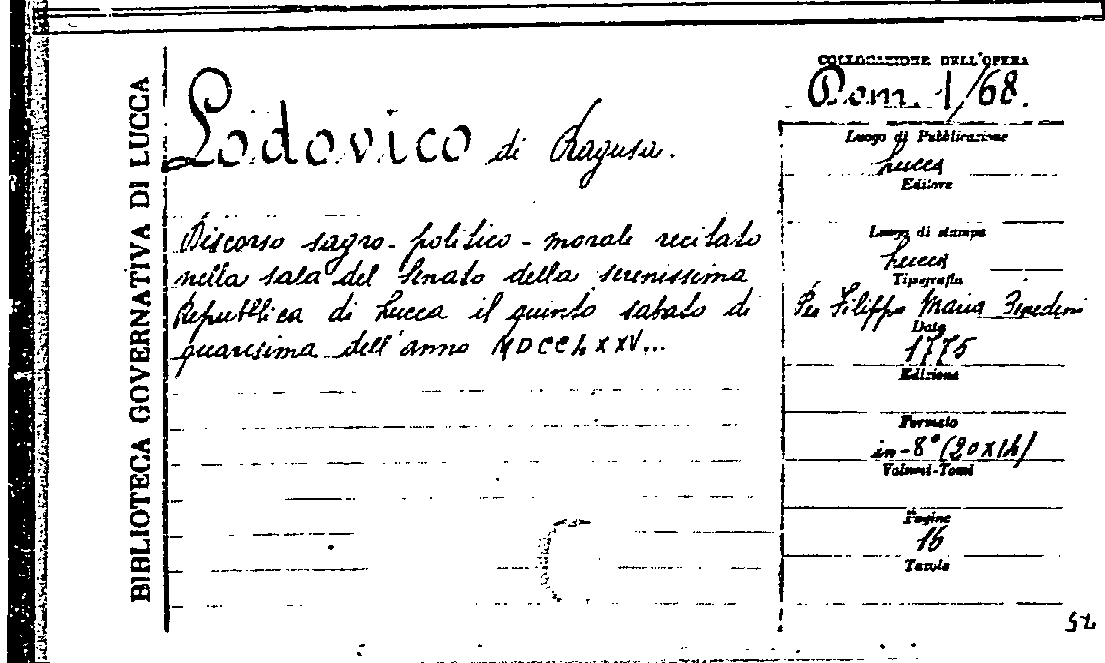 BIBLIOTECA GOVERNATIVA DI LUCCA
Lodovico di Ragusa.
Discorso sagro-politico-morale recitato
nella sala del Senato della serenissima
Repubblica di Lucca il quinto sabato di
quaresima dell'anno MDCCLXXV...
COLLOCAZIONE DELL'OPERA
Dom. 1/68.
Luogo di Pubblicazione
Lucca
Editore
Luogo di stampa
Lucca
Tipografia
Per Filippo Maria
Data
1775
Edizione
Formato
in-8° (20x14)
Volumi-Tomi
Pagine
16
Tavole